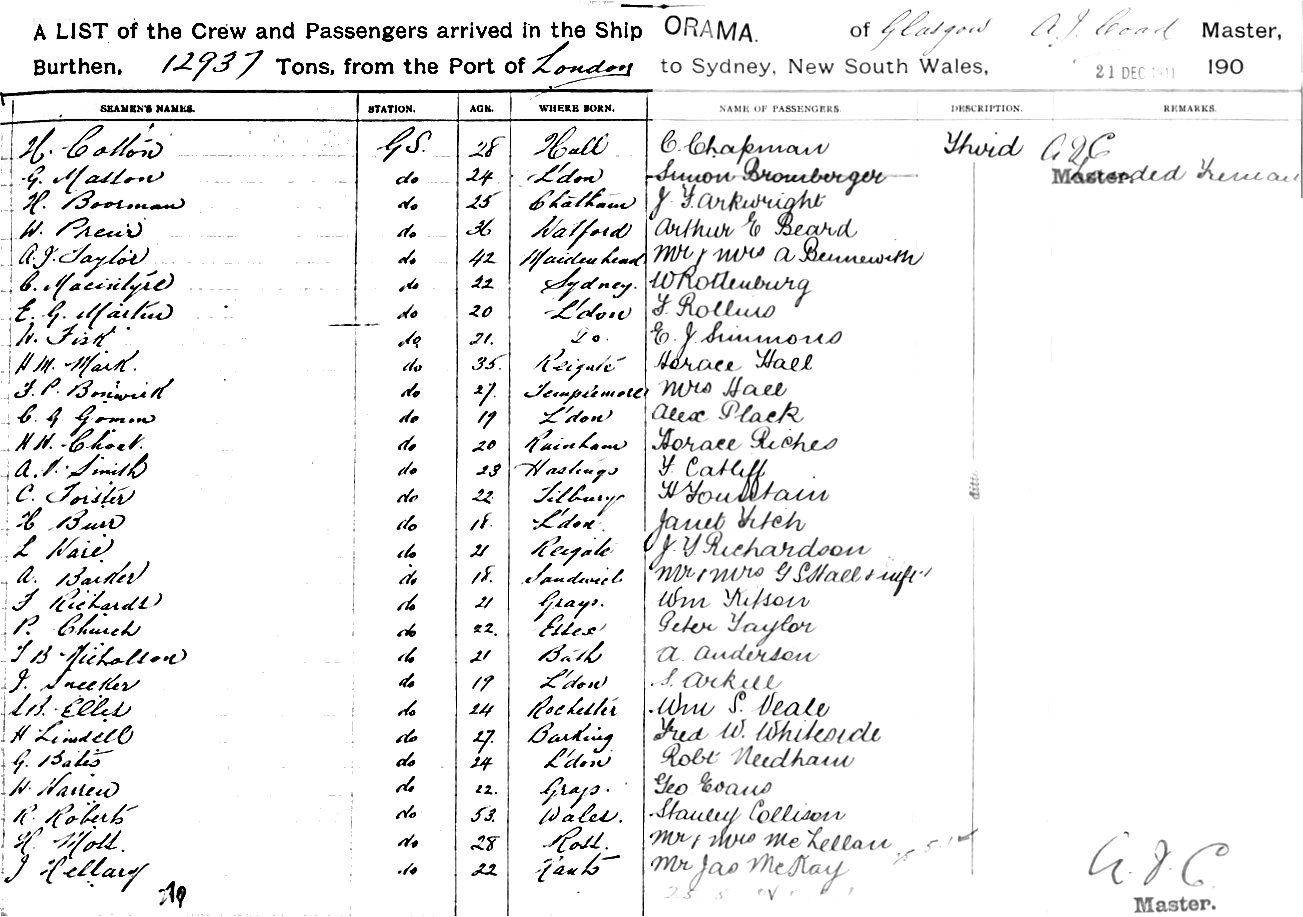 A LIST of the Crew and Passengers arrived in the Ship ORAMA. of Glasgow A. J. Coad Master,
Burthen, 12937 Tons, from the Port of London to Sydney, New South Wales, 21 DEC 1911 190
SEAMEN'S NAMES. STATION. AGE. WHERE BORN. NAME OF PASSENGERS. DESCRIPTION. REMARKS.
H. Cotton G.S. 28 Hull C. Chapman Third A J C
G. Maston do 24 L'don Simon Bromberger Landed Freman Master.
H. Boorman do 25 Chatham J. F. Arkwright
W. Preur do 36 Watford Arthur E Beard
A. J. Taylor do 42 Maidenhead Mr & Mrs A Bennewith
C. Macintyre do 22 Sydney. W Rottenburg
E. G. Martin do 20 L'don F. Rollins
W. Fisk do 21. Do. E. J. Simmons
H M. Mark. do 35. Reigate Horace Hall
F. P. Bonwick do 27. Templemore Mrs Hall
C. G Gomm do 19 L'don Alex Plack
H H. Choat. do 20 Rainham Horace Riches
A. V. Smith do 23 Hastings F. Catliff
C. Forster do 22 Tilbury H Fountain ditto
H Burr do 18. L'don. Janet Fitch
L Hare do 21 Reigate J. Y Richardson
A. Barker do 18. Sandwich Mr & Mrs G S Hall & inft
F Richards do 21 Grays. Wm Kitson
P. Church do 22. Essex Peter Taylor
F B Nicholson do 21 Bath A. Anderson
J. Snecker do 19 L'don S. Arkell
S B. Ellis do 24 Rochester Wm S. Veale
H Lindell do 27. Barking Fred W. Whiteside
G. Bates do 24 L'don Robt Needham
W. Warren do 22. Grays. Geo Evans
R. Roberts do 53. Wales. Stanley Collison
H. Mott. do 28 Ross. Mr & Mrs McLellan
J Kellary do 22 Hants Mr Jas McKay A. J. C.
Master.